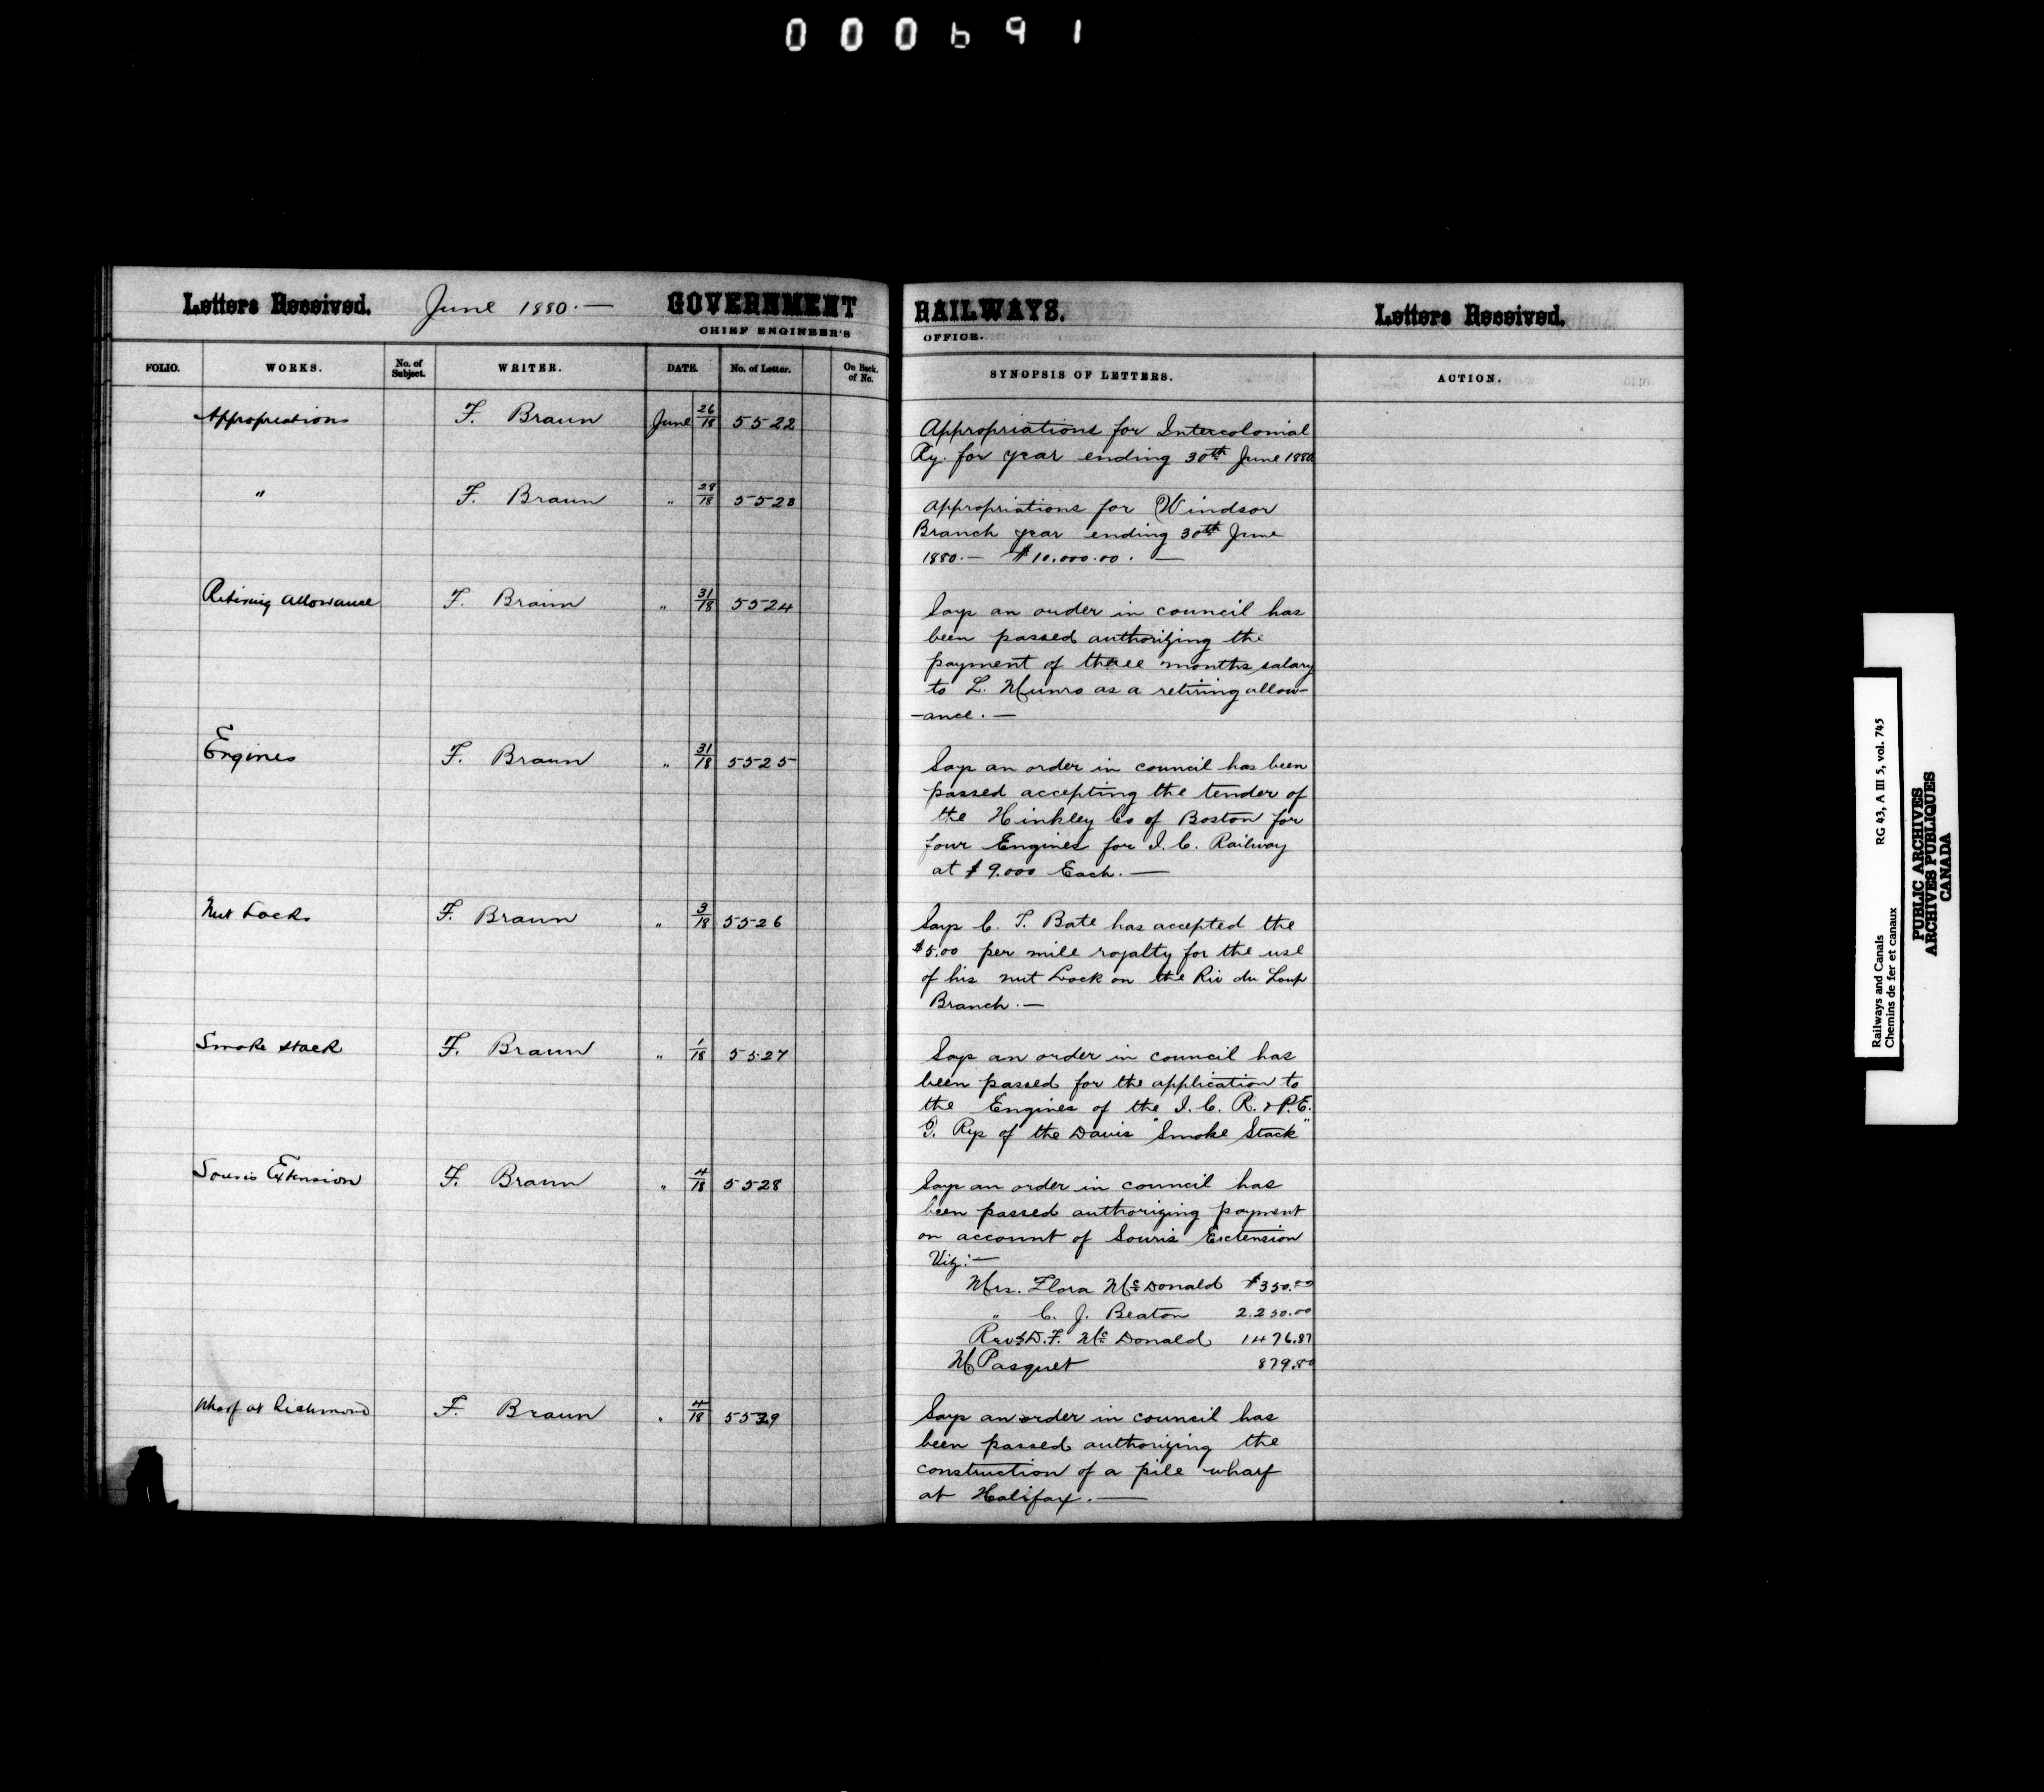 000691
Letters Received. June 1880.— GOVERNMENT RAILWAYS. Letters Received.
CHIEF ENGINEER'S OFFICE.
FOLIO. WORKS. No. of Subject. WRITER. DATE. No. of Letter. On Back of No. SYNOPSIS OF LETTERS. ACTION.
Appropriations F. Braun June 26/18 5522
Appropriations for Intercolonial
Ry. for year ending 30th June 1880
" F. Braun " 28/18 5523
Appropriations for Windsor
Branch year ending 30th June
1880.— $10.000.00. —
Retiring Allowance F. Braun " 31/18 5524
Says an order in council has
been passed authorizing the
payment of three months salary
to L. Munro as a retiring allow-
-ance.—
Engines F. Braun " 31/18 5525
Says an order in council has been
passed accepting the tender of
the Hinkley Co of Boston for
four Engines for I. C. Railway
at $9.000 Each.—
Nut Locks F. Braun " 3/18 5526
Says C. T. Bate has accepted the
$5.00 per mile royalty for the use
of his nut Lock on the Riv du Loup
Branch.—
Smoke stack F. Braun " 1/18 5527
Says an order in council has
been passed for the application to
the Engines of the I. C. R. & P. E.
I. Rys of the Davis "Smoke Stack"
Souris Extension F. Braun " 4/18 5528
Says an order in council has
been passed authorizing payment
on account of Souris Exctension
Viz:—
Mrs. Flora McDonald $350.00
" C. J. Beaton 2.250.00
Revd D. F. McDonald 1476.87
M Pasquet 879.50
Wharf at Richmond F. Braun " 4/18 5529
Says an order in council has
been passed authorizing the
construction of a pile wharf
at Halifax.—
Railways and Canals RG 43, A III 5, vol. 745
Chemins de fer et canaux
PUBLIC ARCHIVES
ARCHIVES PUBLIQUES
CANADA